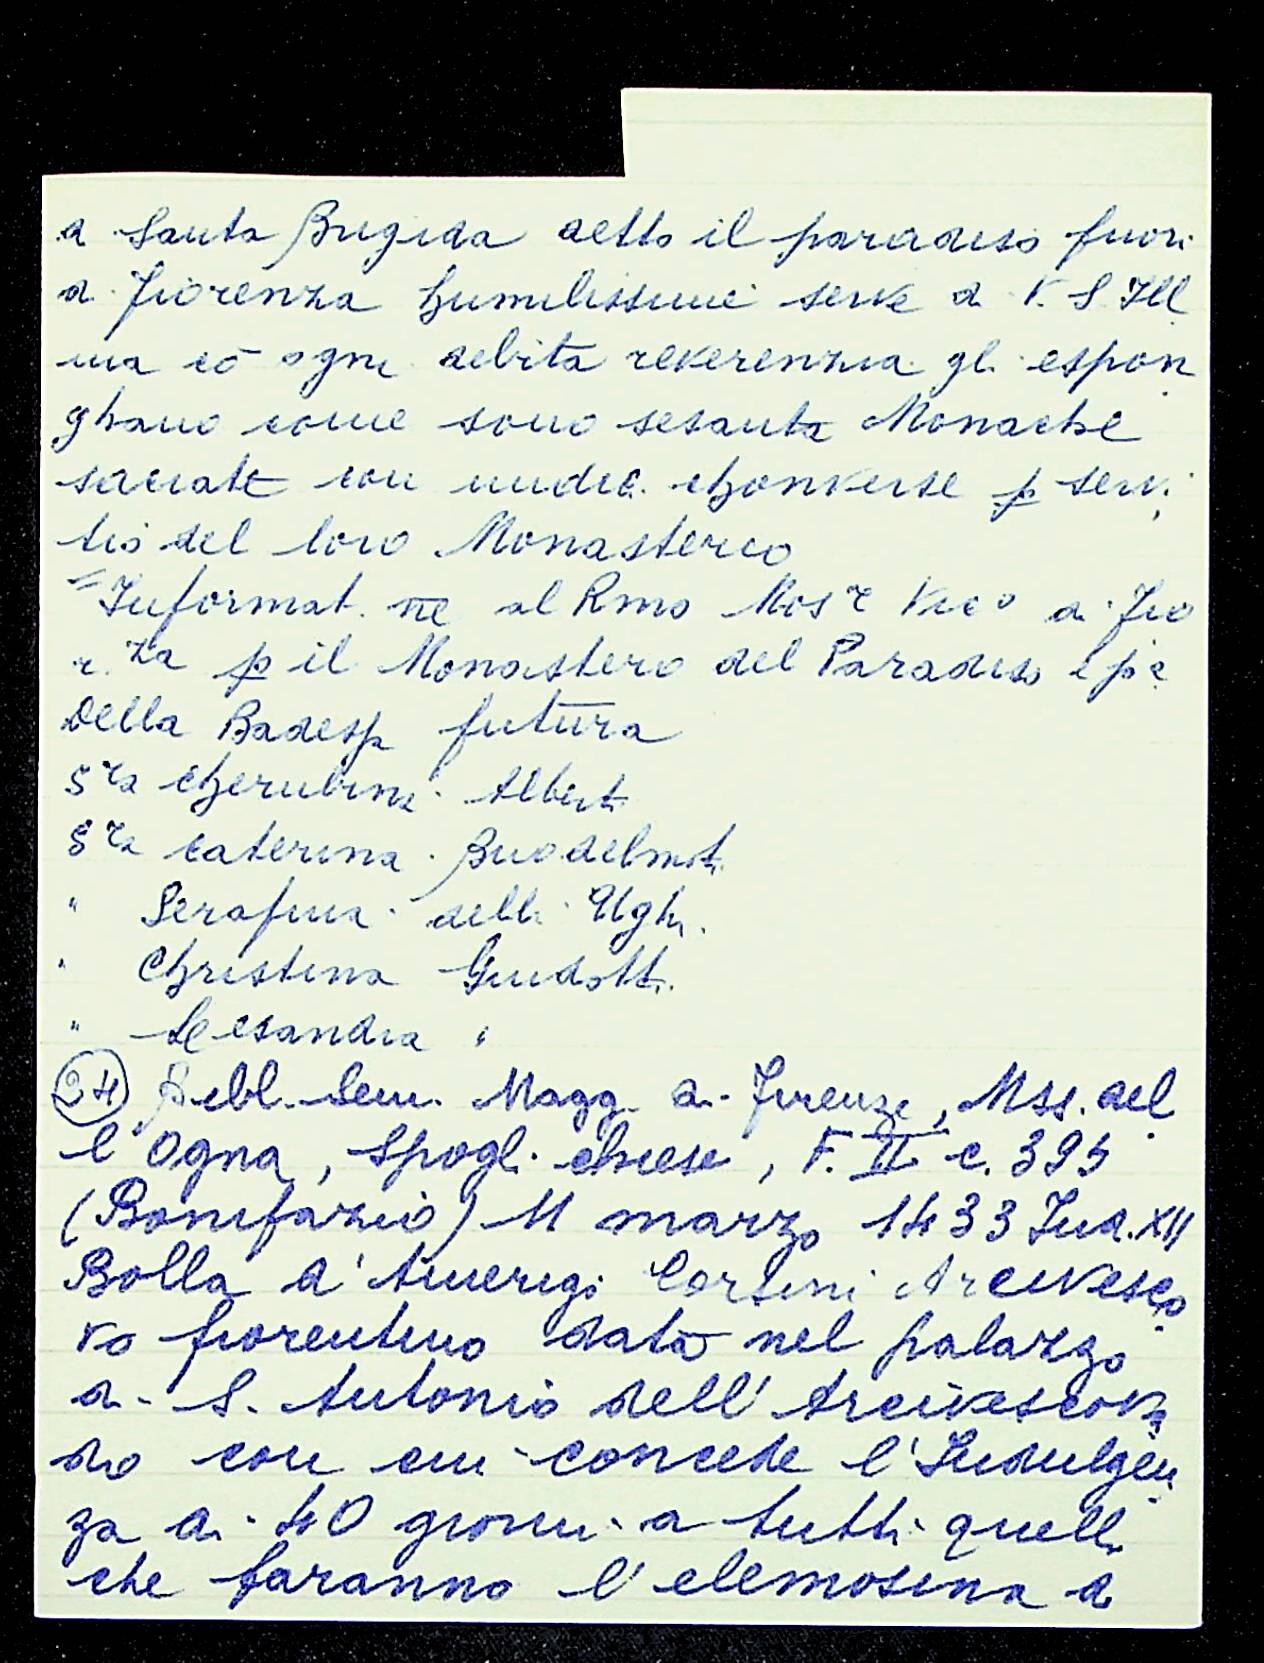 di Santa Brigida detto il paradiso fuori
di Fiorenza humilissime serve di V. S. Ill
ma cō ogni debita reverenzia gli espon
ghano come sono sesanta Monache
sacrate con undici chonverse p servi
tio del loro Monasterio
"Informat. ne al Rmo Mosr Vico di Fio
r.za p il Monastero del Paradiso e pe
Della Badessa futura
Sra Cherubina Alberti
Sra Caterina Buodelmōti
" Serafina delli Ughi.
" Christina Guidotti.
" Lesandra "
(24) Bibl. Sem. Magg. di Firenze, Mss. del
l'Ogna, Spogli chiese, F. II c. 395
(Bonifazio) 11 marzo 1433 Ind. XII
Bolla d'Amerigi Corsini Arcivesco
vo fiorentino data nel palazzo
di S. Antonio dell'Arcivescova
do con cui concede l'Indulgen
za di 40 giorni a tutti quelli
che faranno l'elemosina di